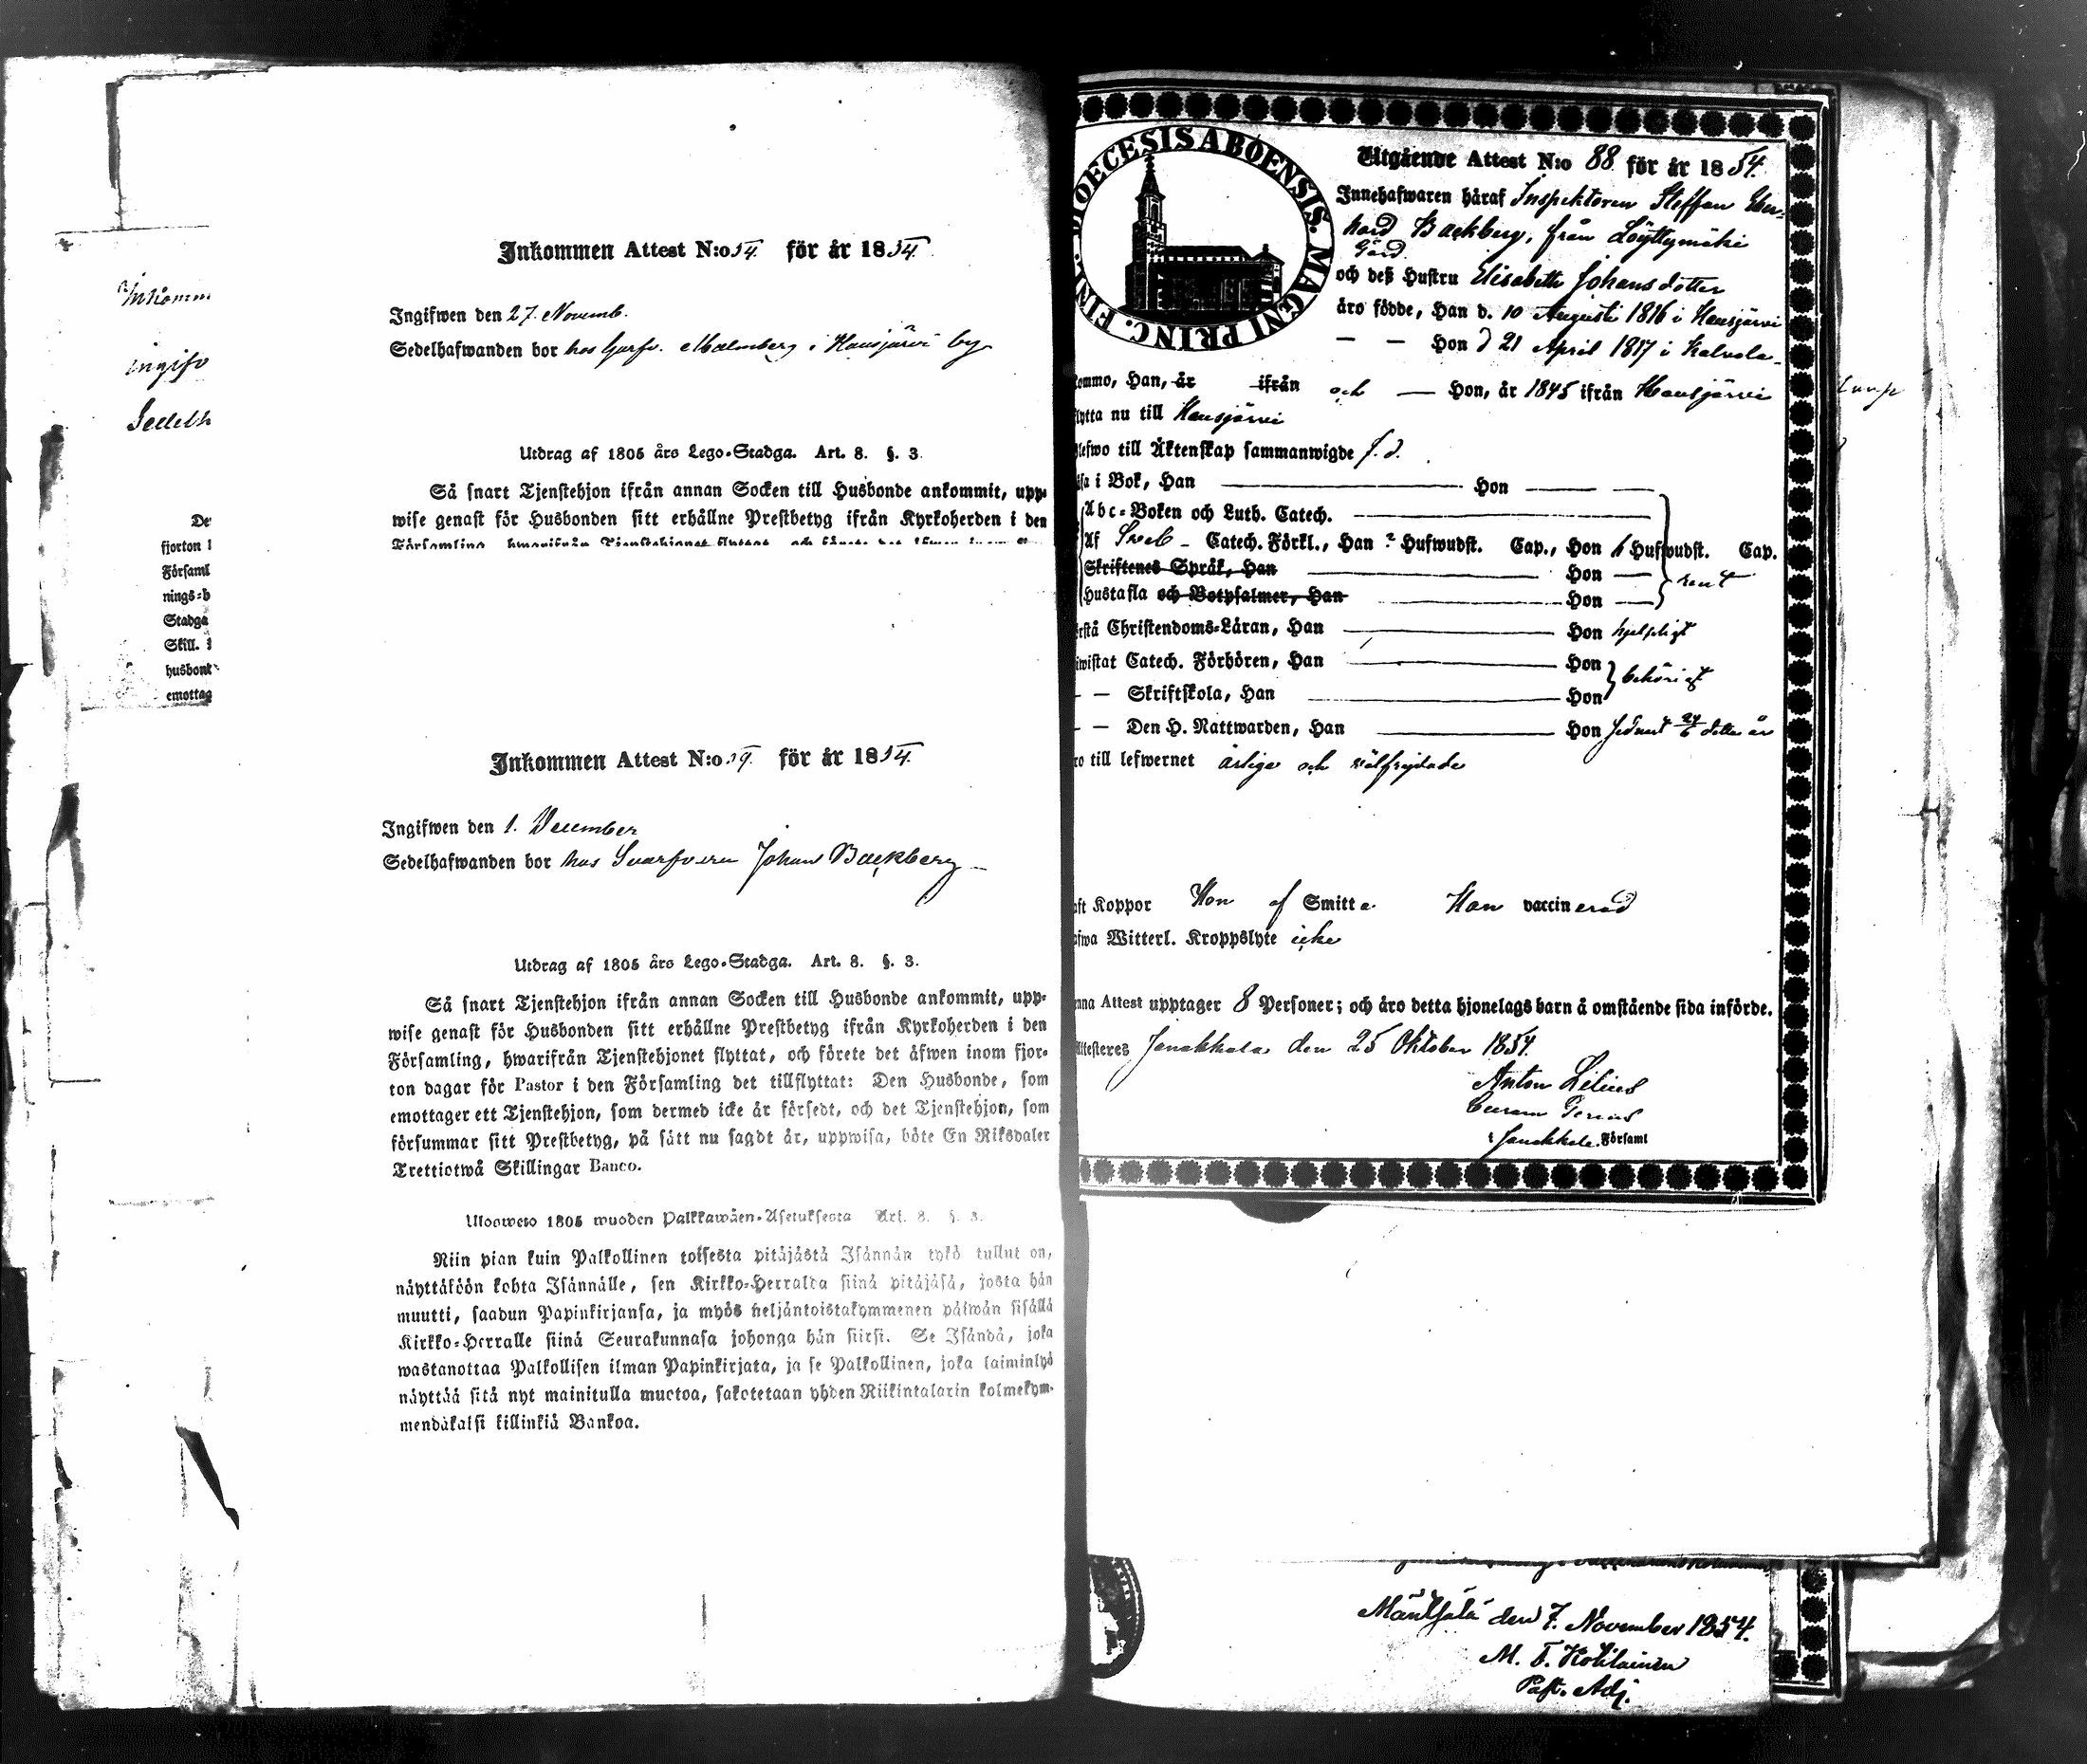 Inkomm
ingifv
Sedelh
De
fjorton
Församl
nings-b
Stadga
Skill.
husbont
emottag
Inkommen Attest N:o 54. för år 1854.
Ingifwen den 27. Novemb.
Sedelhafwanden bor hos Garfv. Malmberg i Hausjärvi by
Utdrag af 1805 års Lego-Stadga. Art. 8. §. 3.
Så snart Tjenstehjon ifrån annan Socken till Husbonde ankommit, upp-
wise genast för Husbonden sitt erhållne Prestbetyg ifrån Kyrkoherden i den
Församling, hwarifrån Tjenstehjonet flyttat, och förete det äfwen inom
Inkommen Attest N:o 59. för år 1854.
Ingifwen den 1. December
Sedelhafwanden bor hos Svarfvaren Johan Backberg
Utdrag af 1805 års Lego-Stadga. Art. 8. §. 3.
Så snart Tjenstehjon ifrån annan Socken till Husbonde ankommit, upp-
wise genast för Husbonden sitt erhållne Prestbetyg ifrån Kyrkoherden i den
Församling, hwarifrån Tjenstehjonet flyttat, och förete det äfwen inom fjor-
ton dagar för Pastor i den Församling det tillflyttat: Den Husbonde, som
emottager ett Tjenstehjon, som dermed icke är försedt, och det Tjenstehjon, som
försummar sitt Prestbetyg, på sätt nu sagdt är, uppwisa, böte En Riksdaler
Trettiotwå Skillingar Banco.
Ulosweto 1805 wuoden Palkkawäen-Asetuksesta Art. 8. §. 3.
Niin pian kuin Palkollinen toisesta pitäjästä Isännän tykö tullut on,
näyttäköön kohta Isännälle, sen Kirkko-Herralda siinä pitäjäsä, josta hän
muutti, saadun Papinkirjansa, ja myös neljäntoistakymmenen päiwän sisällä
Kirkko-Herralle siinä Seurakunnasa johonga hän siirsi. Se Isändä, joka
wastanottaa Palkollisen ilman Papinkirjata, ja se Palkollinen, joka laiminlyö
näyttää sitä nyt mainitulla muotoa, sakotetaan yhden Riikintalarin kolmekym-
mendäkaksi killinkiä Bankoa.
DIOECESIS ABOENSIS. MAGNI PRINC. FINL.
Utgående Attest N:o 88 för år 1854.
Innehafwaren häraf Inspektoren Steffan Eber-
hard Backberg, från Löyttymäki
Gård
och deß Hustru Elisabeth Johansdotter
äro födde, Han d. 10 Augusti 1816 i Hausjärvi
— — Hon d 21 April 1817 i Kalvola
kommo, Han, år ifrån och — Hon, år 1845 ifrån Hausjärvi
flytta nu till Hausjärvi
blefwo till Äktenskap sammanwigde f. d.
läsa i Bok, Han — Hon —
Abc-Boken och Luth. Catech.
Af Sveb — Catech. Förkl., Han Hufwudst. Cap., Hon 6 Hufwudst. Cap.
Skriftenes Språk, Han — Hon — rent
Hustafla och Botpsalmer, Han — Hon —
förstå Christendoms-Läran, Han — Hon hjelpligt
biwistat Catech. Förhören, Han — Hon
behörigt
— — Skriftskola, Han — Hon
— — Den H. Nattwarden, Han — Hon sednast 24/6 detta år
äro till lefwernet ärlige och välfrejdade
haft Koppor Hon af Smitta Han vaccinerad
hafwa Witterl. Kroppslyte icke
Denna Attest upptager 8 Personer; och äro detta hjonelags barn å omstående sida införde.
Attesteres Janakkala den 25 Oktober 1854.
Anton Lilius
i Janakkala Församl
Mäntsälä den 7. November 1854.
M. T. Kohlainen
Past. Adj.